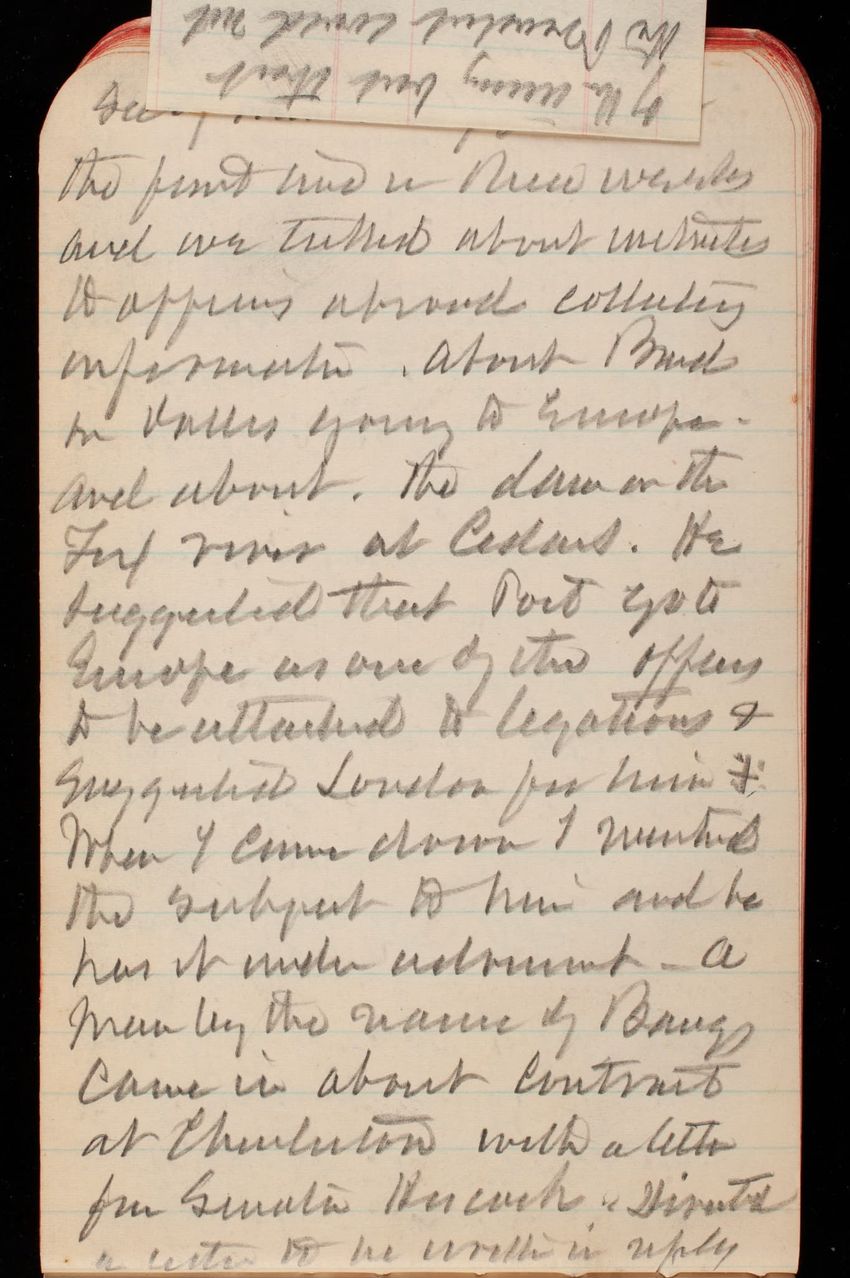 the President would not
of the
the point and in these
and we talked about instructions
to officers abroad collecting
information. About Bond
or Valles going to Europe -
and about. The dam on the
Fox river at Cedars. He
suggested that Post go to
Europe as one of the officers
to be attached to legations &
suggested London for him
When I came down I mentioned
the subject to him and he
has it under advisement - A
man by the name of Bangs
came in about contract
at Charleston with a letter
from Senator Hiscock. Directed
a letter to be written in reply